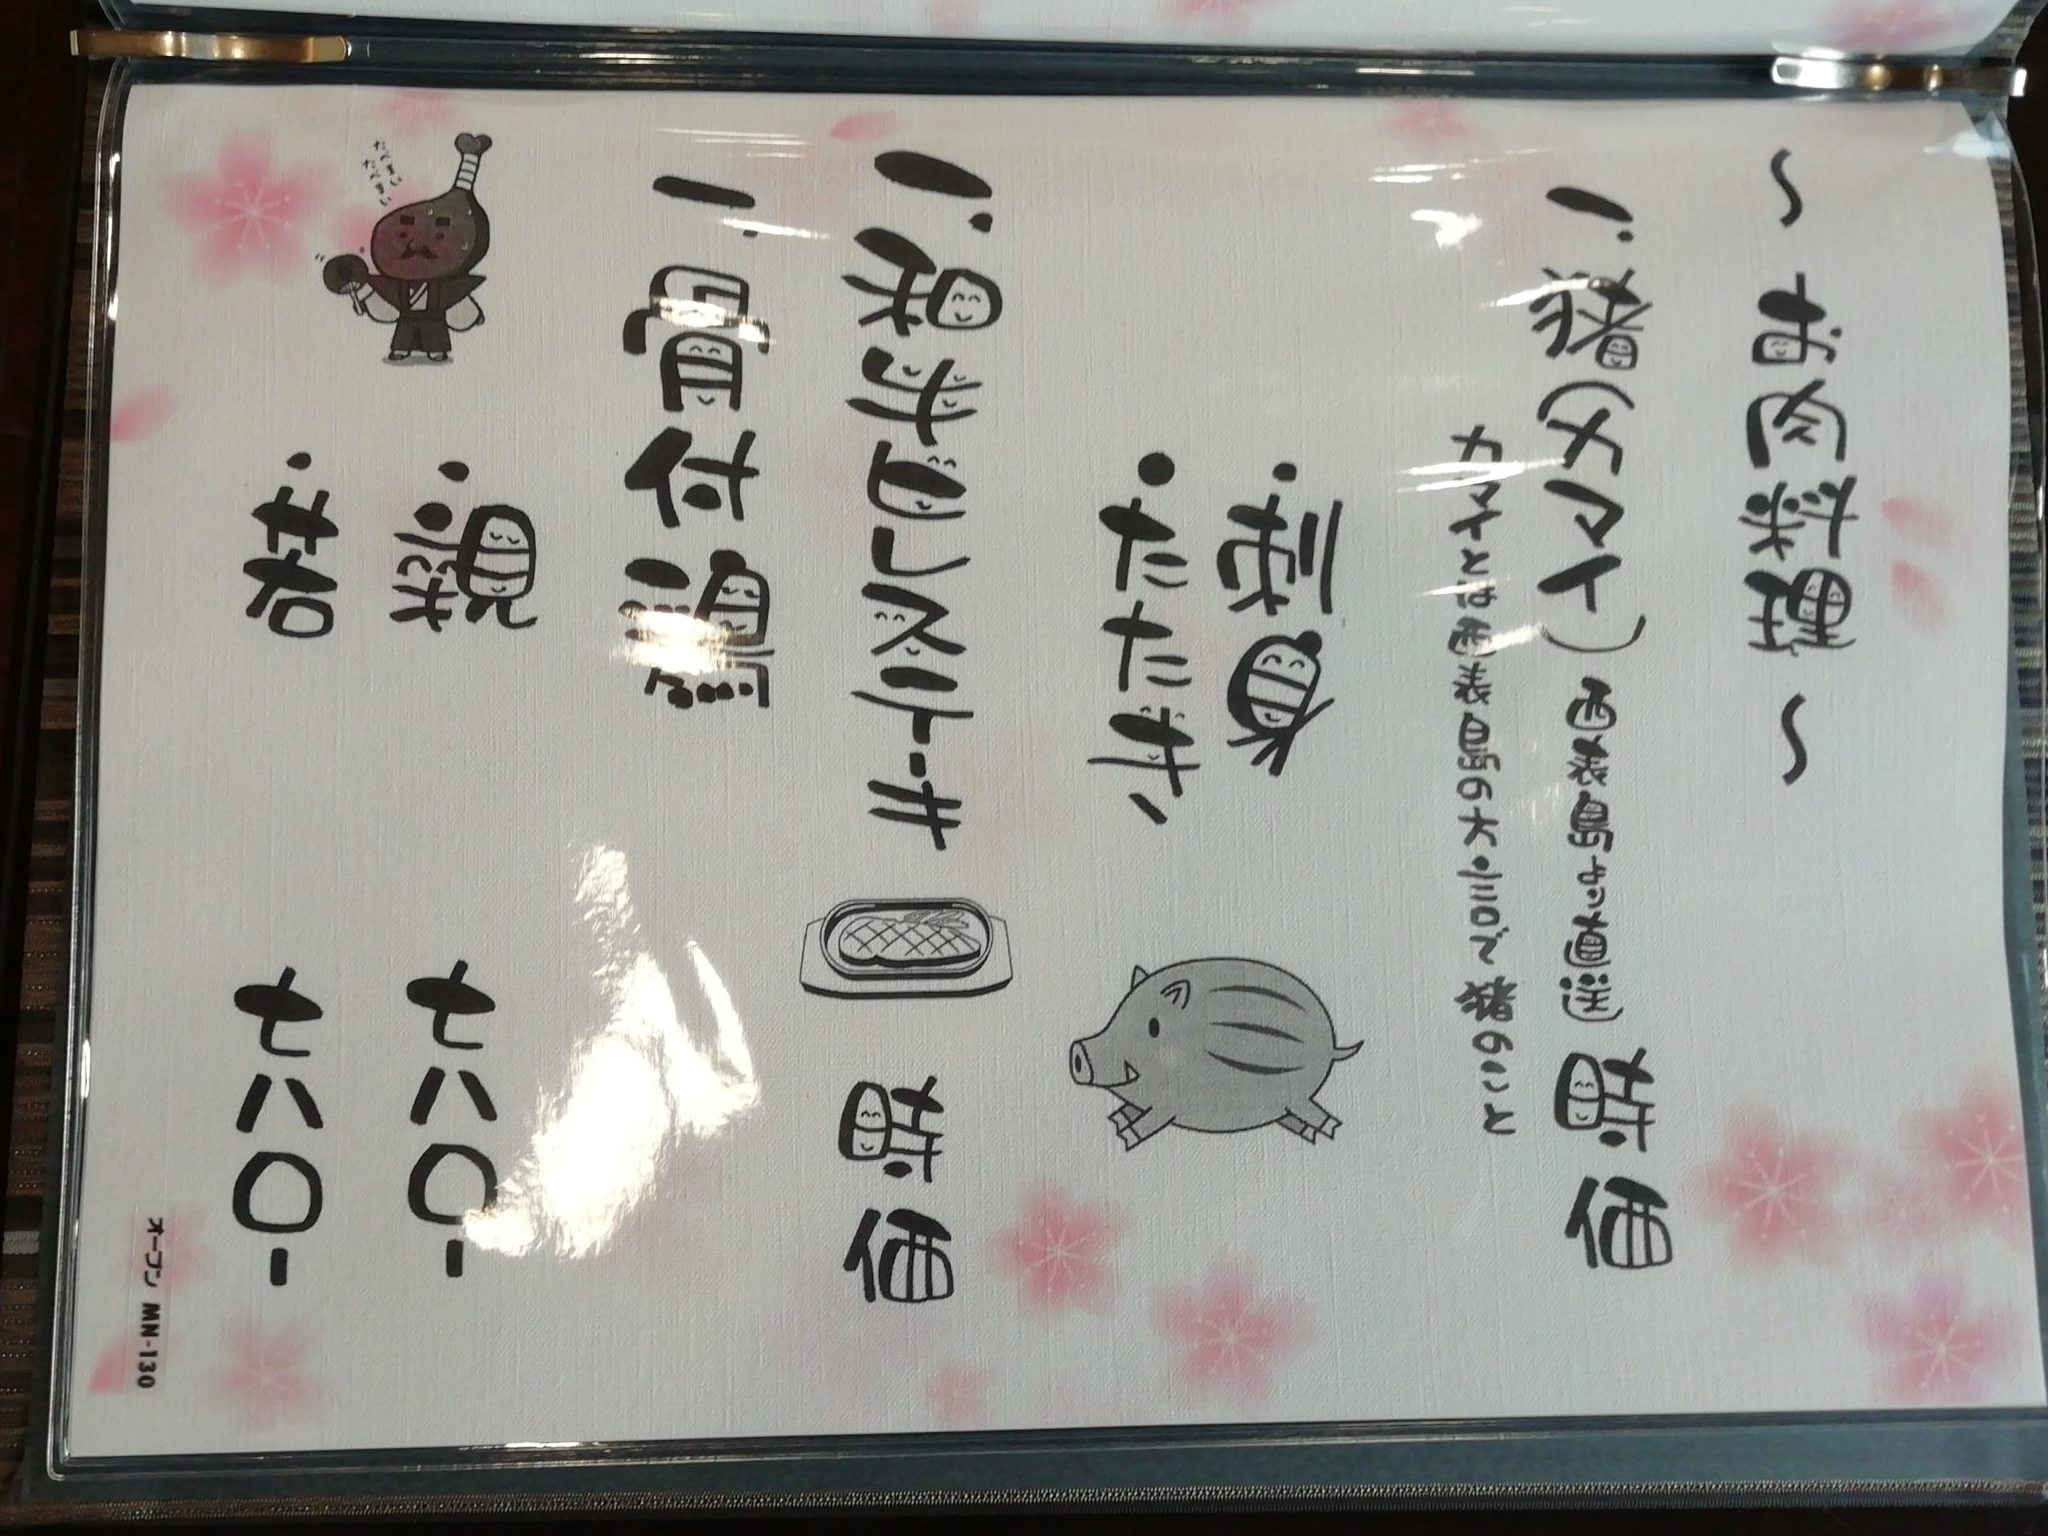 ～お肉料理～
一.猪(カマイ)(西表島から直送) 時価
カマイとは西表島の方言で猪のこと
・刺身
・たたき
一.和牛ヒレステーキ 時価
一.骨付鶏
・親 七八〇-
・若 七八〇-
たべまい
たべまい
オープン MN-130